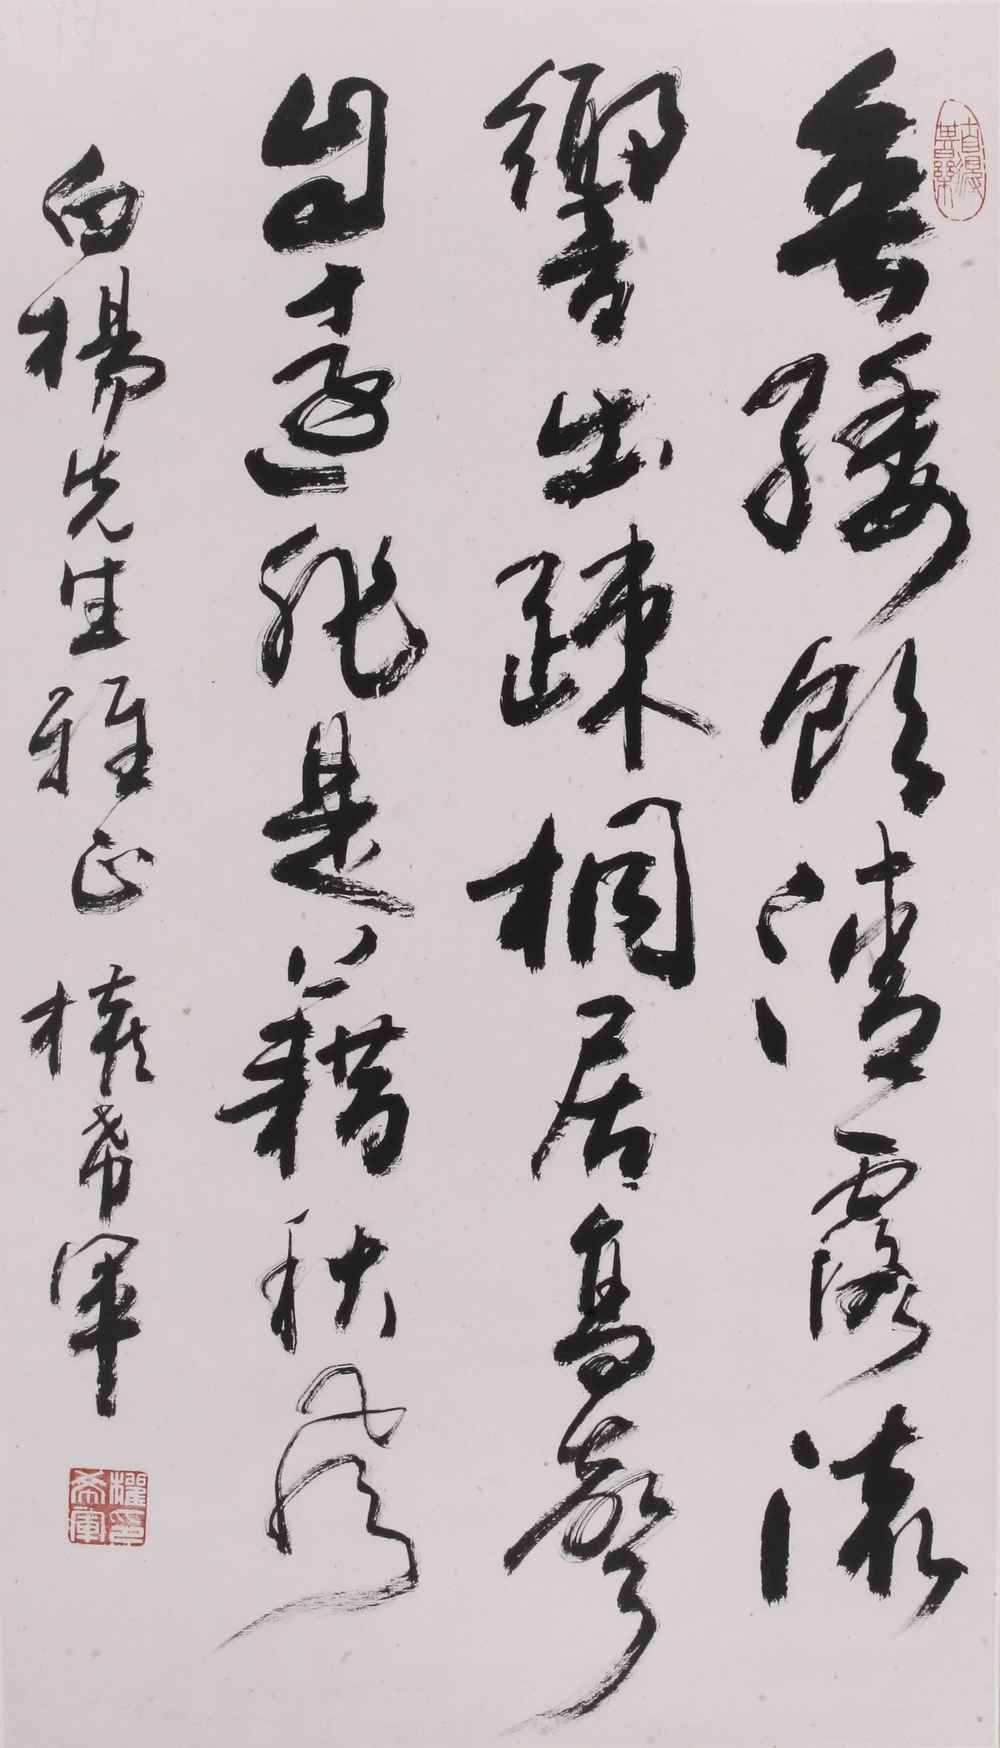 垂緌飲清露流
響出疎桐居高聲
自遠非是藉秋風
白楊先生雅正 權希軍
權希軍印